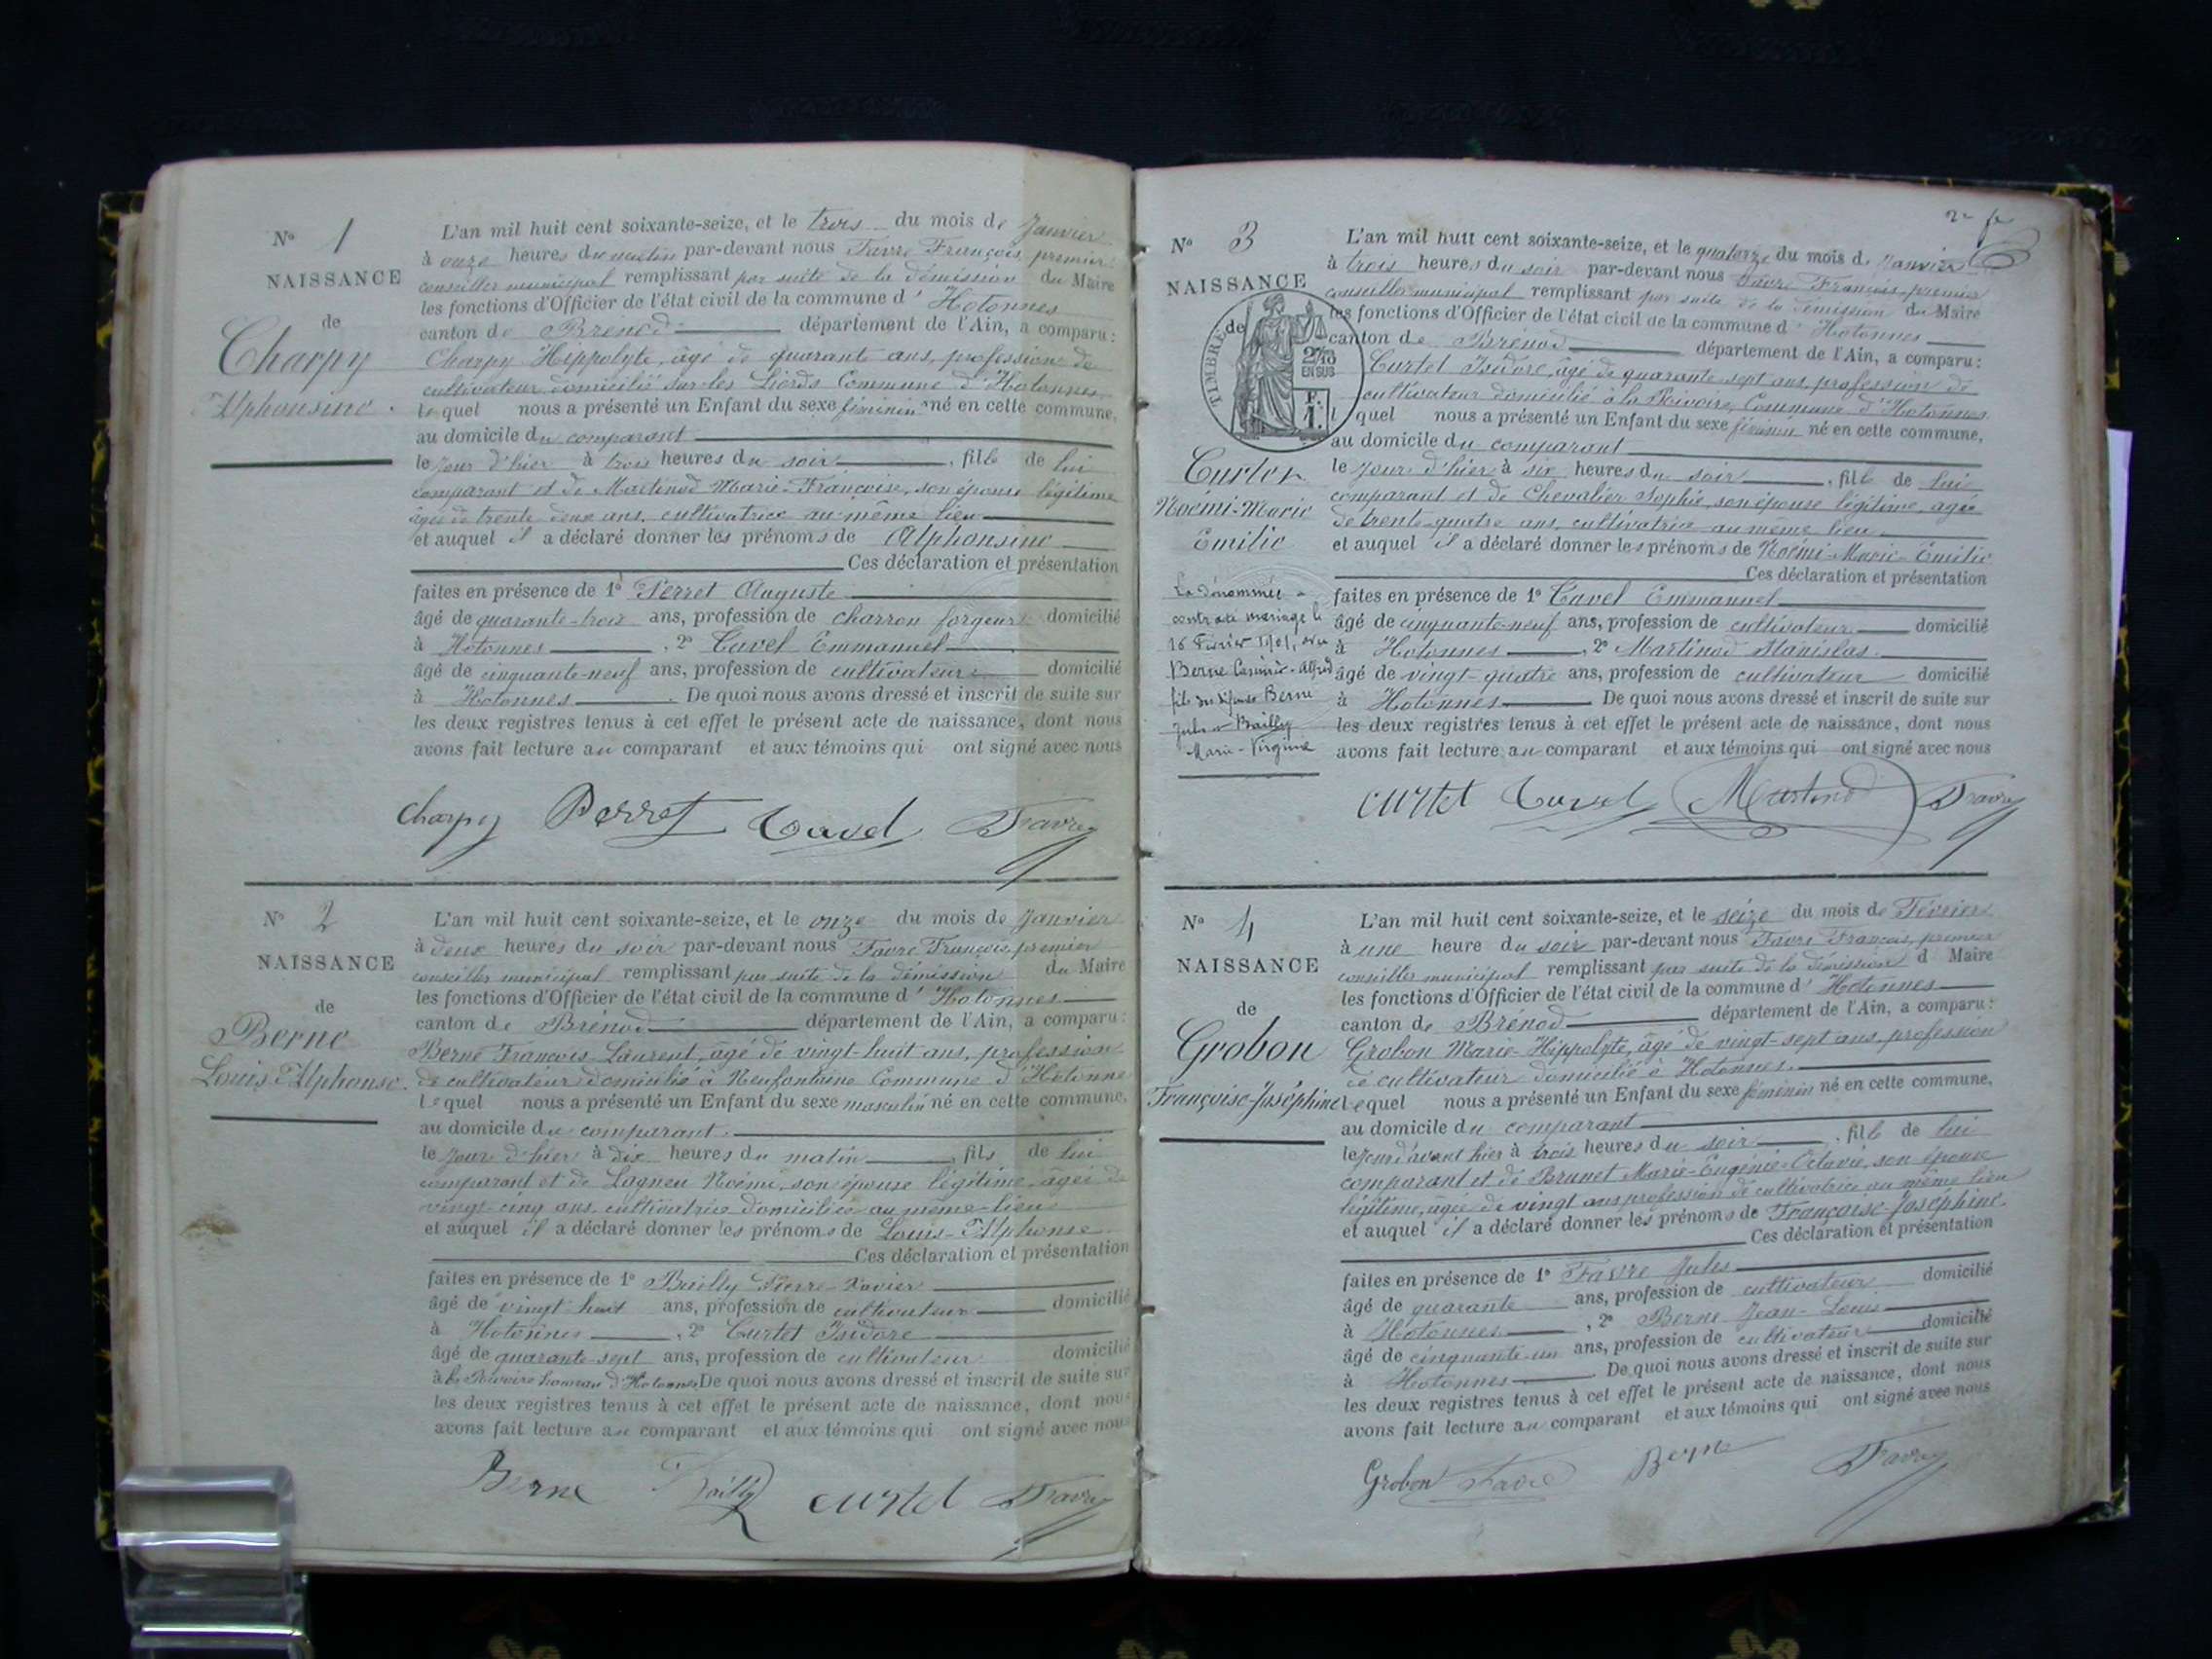 N° 1
NAISSANCE
de
Charpy
Alphonsine.
L'an mil huit cent soixante-seize, et le trois du mois de Janvier
à onze heures du matin par-devant nous Favre François, premier
conseiller municipal remplissant par suite de la démission du Maire
les fonctions d'Officier de l'état civil de la commune d' Hotonnes
canton de Brénod département de l'Ain, a comparu:
Charpy Hippolyte, âgé de quarante ans, profession de
cultivateur domicilié sur les Liords Commune d'Hotonnes
lequel nous a présenté un Enfant du sexe féminin né en cette commune,
au domicile du comparant
le jour d'hier à trois heures du soir, fille de lui
comparant et de Martinod Marie-Françoise, son épouse légitime
âgée de trente deux ans, cultivatrice au même lieu
et auquel il a déclaré donner les prénoms de Alphonsine
Ces déclaration et présentation
faites en présence de 1° Perret Auguste
âgé de quarante-trois ans, profession de charron forgeur domicilié
à Hotonnes, 2° Cavel Emmanuel
âgé de cinquante-neuf ans, profession de cultivateur domicilié
à Hotonnes. De quoi nous avons dressé et inscrit de suite sur
les deux registres tenus à cet effet le présent acte de naissance, dont nous
avons fait lecture au comparant et aux témoins qui ont signé avec nous
Charpy Perret Cavel Favre
N° 2
NAISSANCE
de
Berne
Louis Alphonse.
L'an mil huit cent soixante-seize, et le onze du mois de Janvier
à deux heures du soir par-devant nous Favre François, premier
conseiller municipal remplissant par suite de la démission du Maire
les fonctions d'Officier de l'état civil de la commune d' Hotonnes
canton de Brénod département de l'Ain, a comparu:
Berne François Laurent, âgé de vingt-huit ans, profession
de cultivateur domicilié à Neufontaine Commune d'Hotonne
lequel nous a présenté un Enfant du sexe masculin né en cette commune,
au domicile du comparant.
le jour d'hier à dix heures du matin, fils de lui
comparant et de Lagneu Noémi, son épouse légitime, âgée de
vingt-cinq ans, cultivatrice domiciliée au même lieu
et auquel il a déclaré donner les prénoms de Louis-Alphonse
Ces déclaration et présentation
faites en présence de 1° Bailly Pierre-Xavier
âgé de vingt huit ans, profession de cultivateur domicilié
à Hotonnes, 2° Curtet Isidore
âgé de quarante-sept ans, profession de cultivateur domicilié
à la Rivoire d'Hotonnes De quoi nous avons dressé et inscrit de suite sur
les deux registres tenus à cet effet le présent acte de naissance, dont nous
avons fait lecture au comparant et aux témoins qui ont signé avec nous
Berne Bailly curtet Favre
N° 3
NAISSANCE
de
TIMBRE
2/10
EN SUS
F.
1.
Curtet
Noémi-Marie
Emilie
La dénommée a
contracté mariage le
16 Février 1901, avec
Berne Casimir-Alfred
fils des défunts Berne
Jules et Bailly
Marie-Virginie
L'an mil huit cent soixante-seize, et le quatorze du mois de Janvier
à trois heures du soir par-devant nous Favre François, premier
conseiller municipal remplissant par suite de la démission du Maire
les fonctions d'Officier de l'état civil de la commune d' Hotonnes
canton de Brénod département de l'Ain, a comparu:
Curtet Isidore, âgé de quarante sept ans, profession de
cultivateur domicilié à la Rivoire, Commune d'Hotonnes
lquel nous a présenté un Enfant du sexe féminin né en cette commune,
au domicile du comparant
le jour d'hier à six heures du soir, fille de lui
comparant et de Chevalier Sophie, son épouse légitime, âgée
de trente-quatre ans, cultivatrice au même lieu
et auquel il a déclaré donner les prénoms de Noémi-Marie-Emilie
Ces déclaration et présentation
faites en présence de 1° Cavel Emmanuel
âgé de cinquante-neuf ans, profession de cultivateur domicilié
à Hotonnes, 2° Martinod Stanislas.
âgé de vingt-quatre ans, profession de cultivateur domicilié
à Hotonnes De quoi nous avons dressé et inscrit de suite sur
les deux registres tenus à cet effet le présent acte de naissance, dont nous
avons fait lecture au comparant et aux témoins qui ont signé avec nous
curtet Cavel Martinod Favre
N° 4
NAISSANCE
de
Grobon
Françoise-Joséphine
L'an mil huit cent soixante-seize, et le seize du mois de Février
à une heure du soir par-devant nous Favre François, premier
conseiller municipal remplissant par suite de la démission d Maire
les fonctions d'Officier de l'état civil de la commune d' Hotonnes
canton de Brénod département de l'Ain, a comparu:
Grobon Marie-Hippolyte, âgé de vingt-sept ans, profession
de cultivateur domicilié à Hotonnes.
lequel nous a présenté un Enfant du sexe féminin né en cette commune,
au domicile du comparant
le jour d'avant hier à trois heures du soir, fille de lui
comparant et de Brunet Marie-Eugénie-Octavie, son épouse
légitime, âgée de vingt ans profession de cultivatrice au même lieu
et auquel il a déclaré donner les prénoms de Françoise-Joséphine.
Ces déclaration et présentation
faites en présence de 1° Favre Jules
âgé de quarante ans, profession de cultivateur domicilié
à Hotonnes, 2° Berne Jean-Louis
âgé de cinquante-un ans, profession de cultivateur domicilié
à Hotonnes. De quoi nous avons dressé et inscrit de suite sur
les deux registres tenus à cet effet le présent acte de naissance, dont nous
avons fait lecture au comparant et aux témoins qui ont signé avec nous
Grobon Favre Berne Favre